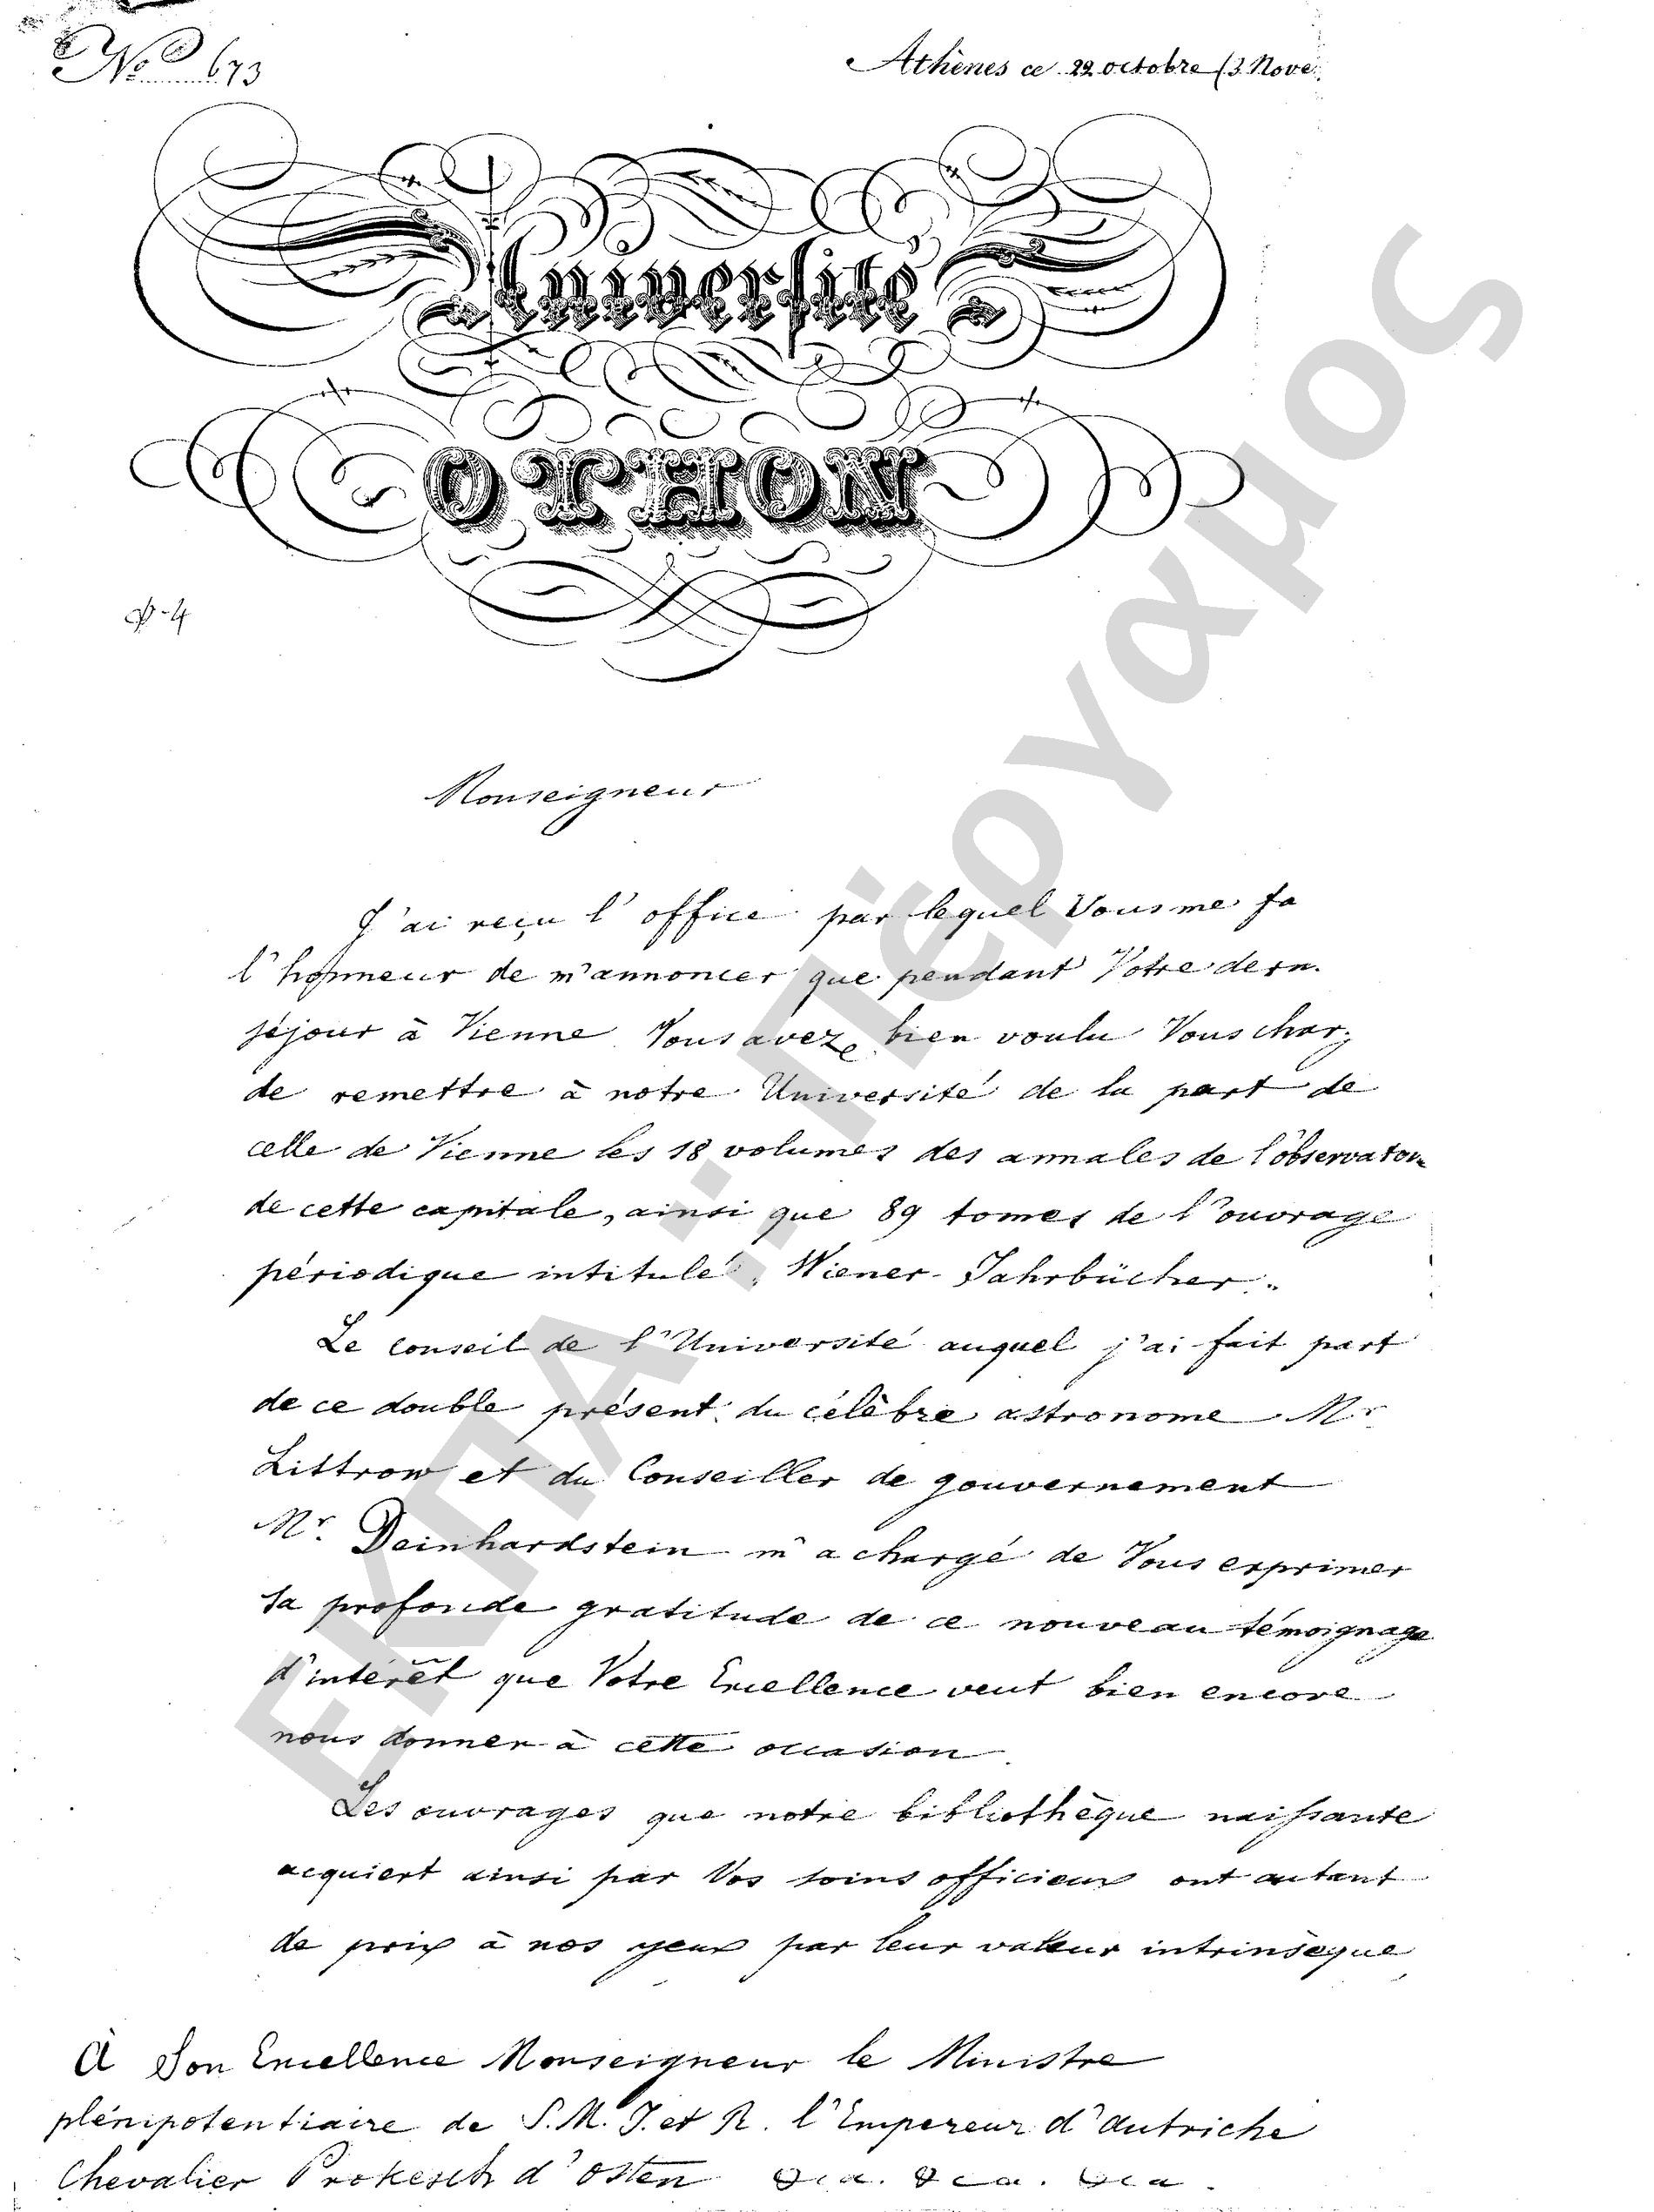 No 673
Athènes ce 22 octobre (3 Nove
Université
OTHON
Monseigneur
J'ai reçu l'office par lequel Vous me fa
l'honneur de m'annoncer que pendant Votre dern.
séjour à Vienne Vous avez bien voulu Vous charg
de remettre à notre Université de la part de
celle de Vienne les 18 volumes des annales de l'observatoire
de cette capitale, ainsi que 89 tomes de l'ouvrage
périodique intitulé „Wiener-Jahrbücher."
Le conseil de l'Université auquel j'ai fait part
de ce double présent du célèbre astronome Mr
Littrow et du Conseiller de gouvernement
Mr. Deinhardstein m'a chargé de Vous exprimer
sa profonde gratitude de ce nouveau témoignage
d'intérêt que Votre Excellence veut bien encore
nous donner à cette occasion.
Les ouvrages que notre bibliothèque naissante
acquiert ainsi par Vos soins officieux ont autant
de prix à nos yeux par leur valeur intrinsèque
À Son Excellence Monseigneur le Ministre
plénipotentiaire de S. M. I. et R. l'Empereur d'Autriche
Chevalier Prokesch d'Osten &ca. &ca. &ca.
ΕΚΠΑ :: Πέργαμος